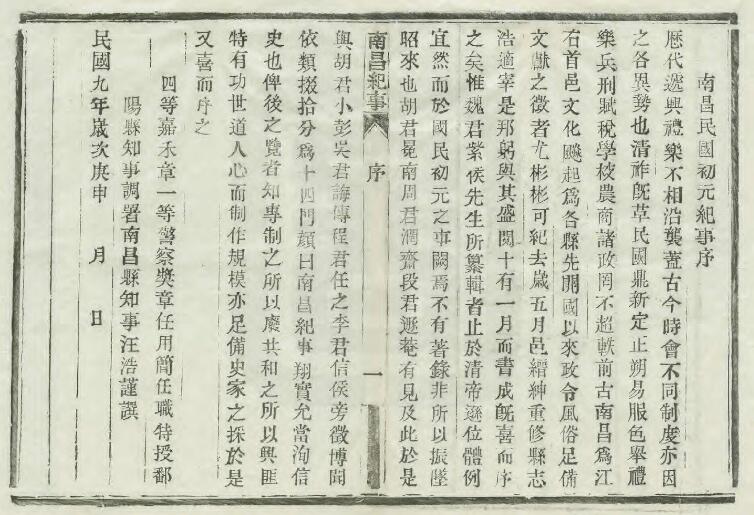 南昌民國初元紀事序
歷代遞興禮樂不相沿襲蓋古今時會不同制度亦因
之各異勢也清祚旣革民國鼎新定正朔易服色舉禮
樂兵刑賦稅學校農商諸政罔不超軼前古南昌爲江
右首邑文化飈起爲各縣先開國以來政令風俗足備
文獻之徵者尤彬彬可紀去歲五月邑縉紳重修縣志
浩適宰是邦躬與其盛閱十有一月而書成旣喜而序
之矣惟魏君紫侯先生所纂輯者止於清帝遜位體例
宜然而於國民初元之事闕焉不有著錄非所以振墜
昭來也胡君冕南周君潤齋段君遯菴有見及此於是
南昌紀事
序
一
與胡君小彭吳君誨傳程君任之李君信侯旁徵博聞
依類掇拾分爲十四門顏曰南昌紀事翔實允當洵信
史也俾後之覽者知專制之所以廢共和之所以興匪
特有功世道人心而制作規模亦足備史家之採於是
又喜而序之
四等嘉禾章一等警察獎章任用簡任職特授鄱
陽縣知事調署南昌縣知事汪浩謹譔
民國九年歲次庚申 月 日